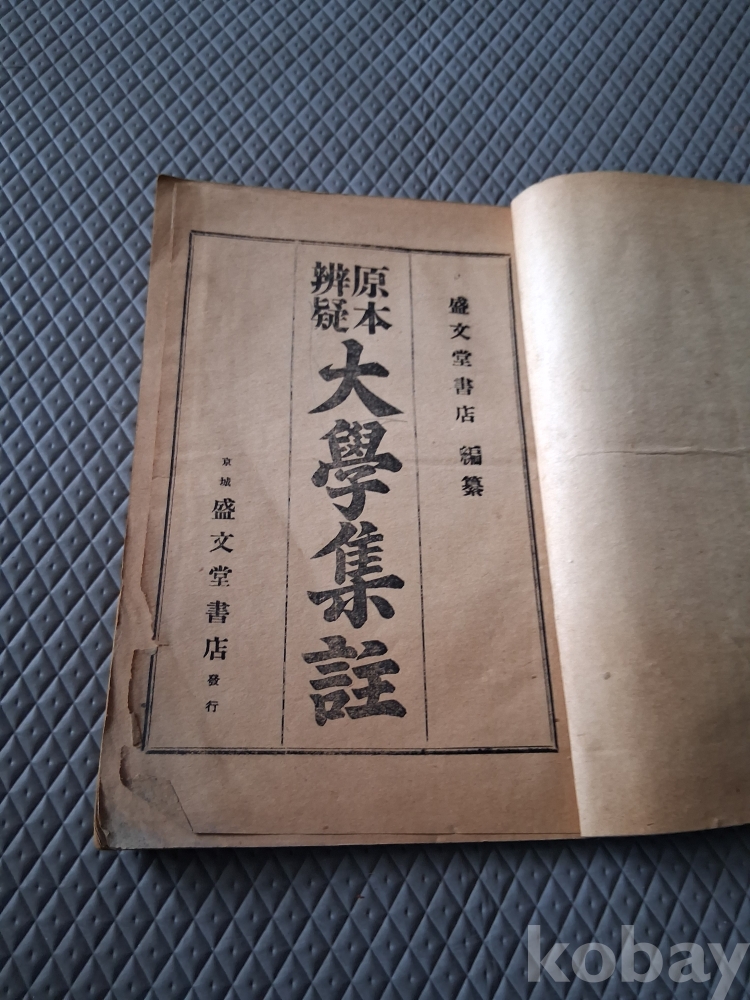 盛文堂書店 編纂
原本
辨疑
大學集註
京城 盛文堂書店 發行
kobay